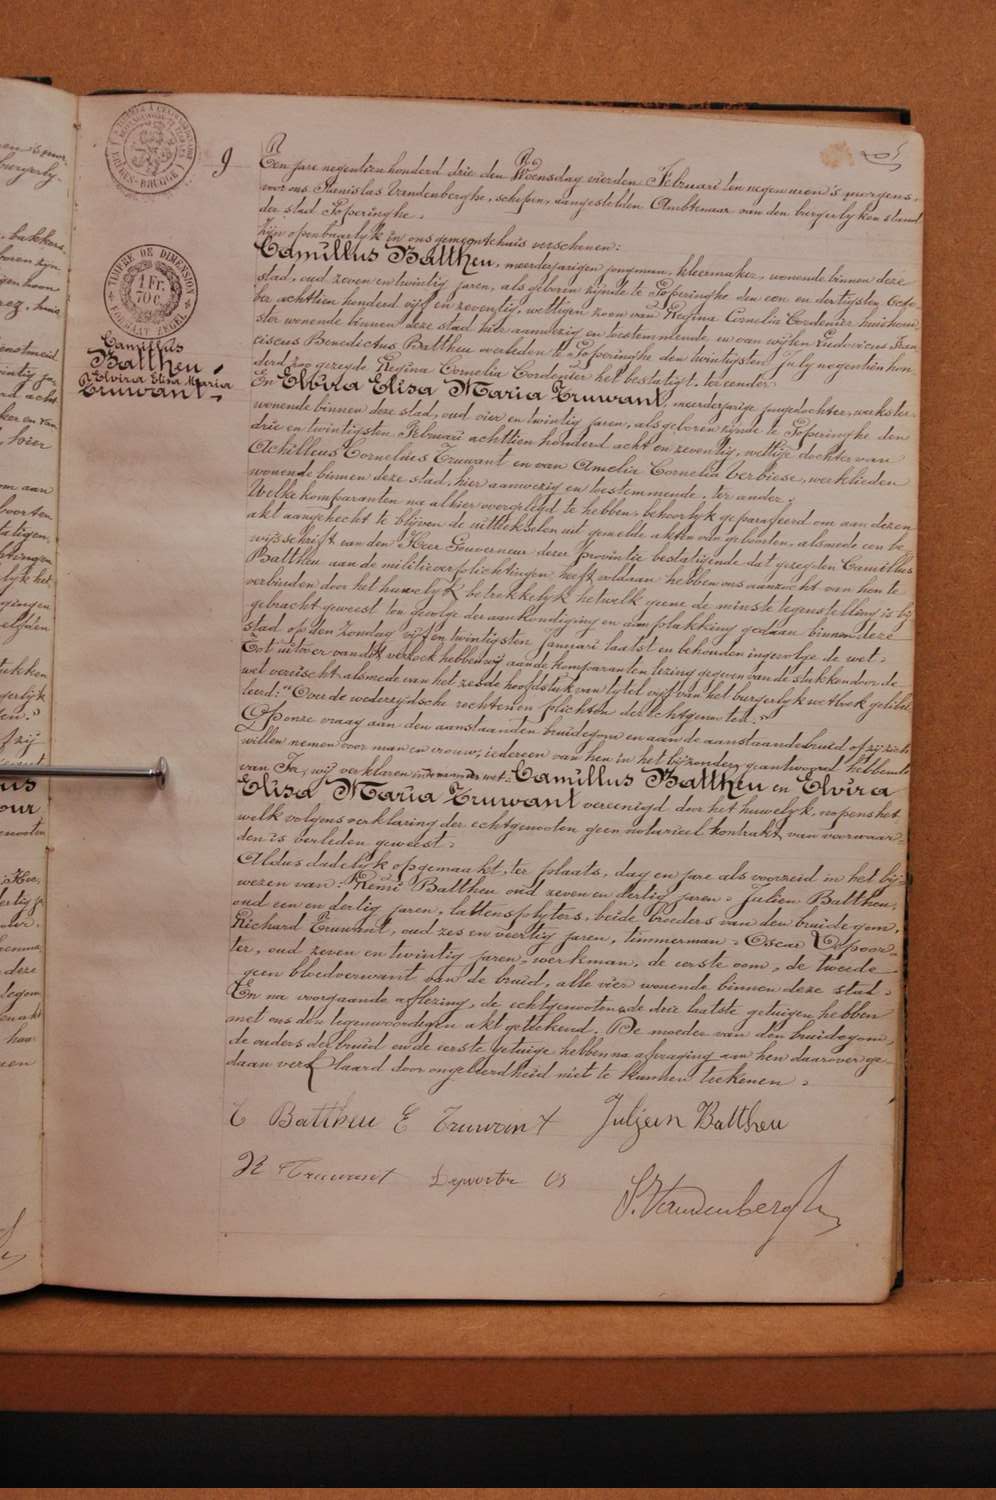 9
TIMBRE DE DIMENSION
1 Fr. 70 c.
FORMAAT ZEGEL
BRUGES-BRUGGE
Camillus
Battheu
& Elvira Elisa Maria
Truwant
Een jare negentien honderd drie den Woensdag vierden Februari ten negen uren 's morgens,
voor ons Stanislas Vandenberghe, schepen, aangestelden Ambtenaar van den burgerlyken stand
der stad Poperinghe.
Zyn openbaarlyk in ons gemeentehuis verschenen:
Camillus Battheu, meerderjarigen jongman, kleermaker, wonende binnen deze
stad, oud zeven en twintig jaren, als geboren zijnde te Poperinghe den een en dertigsten Octo-
ber achttien honderd vijf en zeventig, wettigen zoon van Regina Cornelia Cordenier huishoud-
ster wonende binnen deze stad hier aanwezig en toestemmende en van wijlen Ludovicus Fran
ciscus Benedictus Battheu overleden te Poperinghe den twintigsten July negentien hon
derd zoo gezegde Regina Cornelia Cordenier het bestatigt, ter eender
En Elvira Elisa Maria Truwant, meerderjarige jongedochter, werkster
wonende binnen deze stad, oud vier en twintig jaren, als geboren zynde te Poperinghe den
drie en twintigsten Februari achttien honderd acht en zeventig, wettige dochter van
Achilleus Cornelius Truwant en van Amelia Cornelia Verbiese, werklieden
wonende binnen deze stad, hier aanwezig en toestemmende, ter ander.
Welke komparanten na alhier voorgelegd te hebben, behoorlyk geparafeerd om aan dezen
akt aangehecht te blijven de uittreksels uit gemelde akten van geboorten, alsmede een be
wijsschrift van den Heer Gouverneur dezer provintie bestatigende dat gezegden Camillus
Battheu aan de militieverplichtingen heeft voldaan hebben ons aanzocht van hen te
verbinden door het huwelyk betrekkelyk hetwelk geene de minste tegenstelling is bij
gebracht geweest ten gevolge der aankondiging en aanplakking gedaan binnen deze
stad op den Zondag vijf en twintigsten januari laatst en behouden ingevolge de wet.
Tot uitvoer van dit verzoek hebben wij aan de komparanten lezing gegeven van de stukken door de
wet vereischt alsmede van het zesde hoofdstuk van tytel vyf van het burgerlyk wetboek getitu
leerd: "Over de wederzydsche rechten en plichten der echtgenooten."
Op onze vraag aan den aanstaanden bruidegom en aan de aanstaande bruid of zij zich
willen nemen voor man en vrouw, iedereen van hen in het bijzonder geantwoord hebbende
van Ja, wij verklaren in den naam der wet: Camillus Battheu en Elvira
Elisa Maria Truwant vereenigd door het huwelyk, nopens het
welk volgens verklaring der echtgenooten geen notarieel kontrakt van voorwaar-
den is verleden geweest.
Aldus dadelyk opgemaakt, ter plaats, dag en jare als voorzeid in het bij-
wezen van: Remi Battheu oud zeven en dertig jaren, Julien Battheu,
oud een en dertig jaren, lattensplyters, beide broeders van den bruidegom,
Richard Truwant, oud zes en veertig jaren, timmerman, Oscar Depoor-
ter, oud zeven en twintig jaren, werkman, de eerste oom, de tweede
geen bloedverwant van de bruid, alle vier wonende binnen deze stad.
En na voorgaande aflezing, de echtgenooten & de drie laatste getuigen hebben
met ons den tegenwoordigen akt geteekend. De moeder van den bruidegom,
de ouders der bruid en de eerste getuige hebben na afvraging aan hen daarover ge-
daan verklaard door ongeleerdheid niet te kunnen teekenen.
C Battheu E Truwant Julien Battheu
R Truwant Depoorter Os
S. Vandenberghe